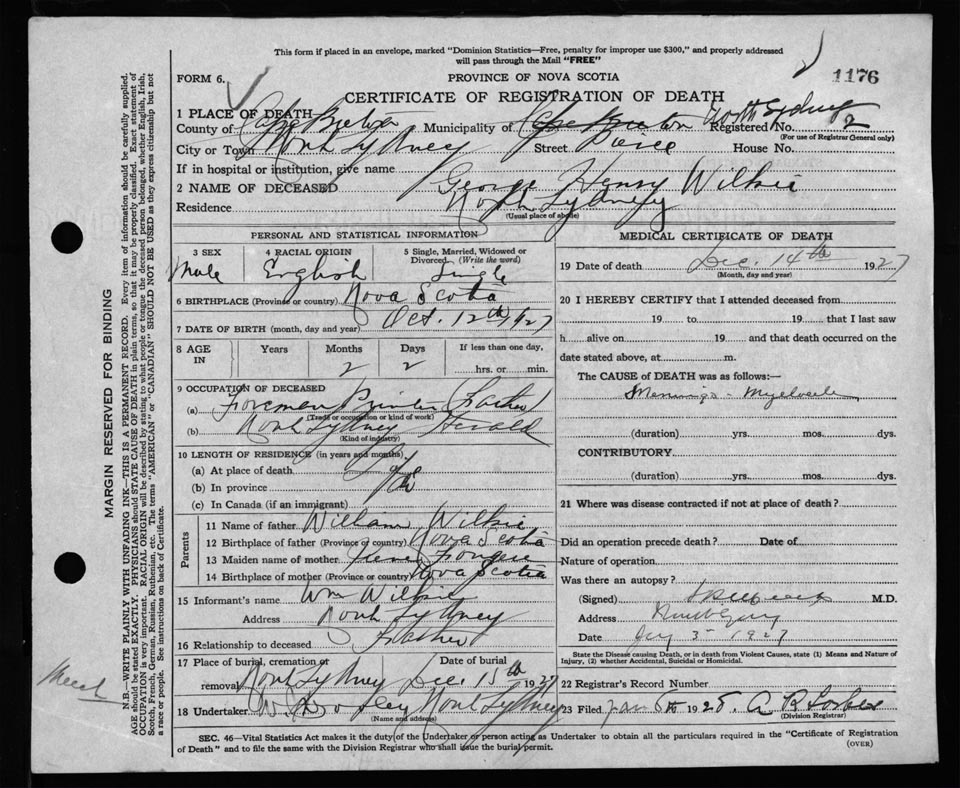 This form if placed in an envelope, marked "Dominion Statistics—Free, penalty for improper use $300," and properly addressed
will pass through the Mail "FREE"
FORM 6.
PROVINCE OF NOVA SCOTIA
1176
CERTIFICATE OF REGISTRATION OF DEATH
1 PLACE OF DEATH
County of Cape Breton Municipality of Cape Breton North Sydney Registered No. 2
(For use of Registrar General only)
City or Town North Sydney Street Pierce House No.
If in hospital or institution, give name
2 NAME OF DECEASED George Henry Wilkie
Residence North Sydney
(Usual place of abode)
PERSONAL AND STATISTICAL INFORMATION
3 SEX Male
4 RACIAL ORIGIN English
5 Single, Married, Widowed or Divorced (Write the word) Single
6 BIRTHPLACE (Province or country) Nova Scotia
7 DATE OF BIRTH (month, day and year) Oct. 12th 1927
8 AGE IN Years Months 2 Days 2 If less than one day, hrs. or min.
9 OCCUPATION OF DECEASED
(a) Foreman Printer (Father)
(Trade or occupation or kind of work)
(b) North Sydney Herald
(Kind of industry)
10 LENGTH OF RESIDENCE (in years and months)
(a) At place of death
(b) In province
(c) In Canada (if an immigrant)
Parents
11 Name of father William Wilkie
12 Birthplace of father (Province or country) Nova Scotia
13 Maiden name of mother
14 Birthplace of mother (Province or country) Nova Scotia
15 Informant's name Wm Wilkie
Address North Sydney
16 Relationship to deceased Father
17 Place of burial, cremation or removal North Sydney Date of burial Dec. 15th 1927
18 Undertaker North Sydney
(Name and address)
MEDICAL CERTIFICATE OF DEATH
19 Date of death Dec. 14th 1927
(Month, day and year)
20 I HEREBY CERTIFY that I attended deceased from
19 to 19 that I last saw
h alive on 19 and that death occurred on the
date stated above, at m.
The CAUSE of DEATH was as follows:—
(duration) yrs. mos. dys.
CONTRIBUTORY
(duration) yrs. mos. dys.
21 Where was disease contracted if not at place of death?
Did an operation precede death? Date of
Nature of operation
Was there an autopsy?
(Signed) M.D.
Address
Date 1927
State the Disease causing Death, or in death from Violent Causes, state (1) Means and Nature of
Injury, (2) whether Accidental, Suicidal or Homicidal.
22 Registrar's Record Number
23 Filed Jan 1928. A R Forbes
(Division Registrar)
SEC. 46—Vital Statistics Act makes it the duty of the Undertaker or person acting as Undertaker to obtain all the particulars required in the "Certificate of Registration
of Death" and to file the same with the Division Registrar who shall issue the burial permit.
(OVER)
MARGIN RESERVED FOR BINDING
N.B.—WRITE PLAINLY WITH UNFADING INK—THIS IS A PERMANENT RECORD. Every item of information should be carefully supplied.
AGE should be stated EXACTLY. PHYSICIANS should STATE CAUSE OF DEATH in plain terms, so that it may be properly classified. Exact statement of
OCCUPATION is very important. RACIAL ORIGIN will be described by stating to what people or tongue the deceased person belonged, whether English, Irish,
Scotch, French, German, Russian, Ruthenian, etc. The terms "AMERICAN" or "CANADIAN" SHOULD NOT BE USED as they express citizenship but not
a race or people. See instructions on back of Certificate.